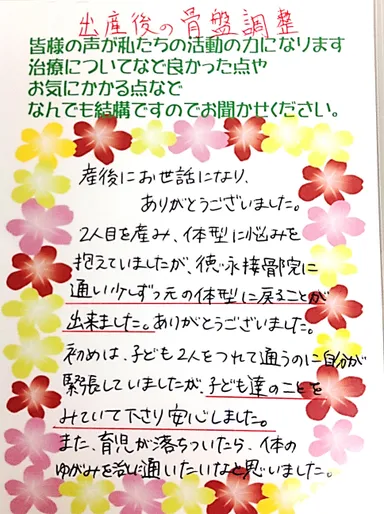 出産後の骨盤調整
皆様の声が私たちの活動の力になります
治療についてなど良かった点や
お気にかかる点など
なんでも結構ですのでお聞かせください。
産後にお世話になり、
ありがとうございました。
2人目を産み、体型に悩みを
抱えていましたが、徳永接骨院に
通い少しずつ元の体型に戻ることが
出来ました。ありがとうございました。
初めは、子ども2人をつれて通うのに自分が
緊張していましたが、子ども達のことを
みていて下さり安心しました。
また、育児が落ちついたら、体の
ゆがみを治しに通いたいなと思いました。